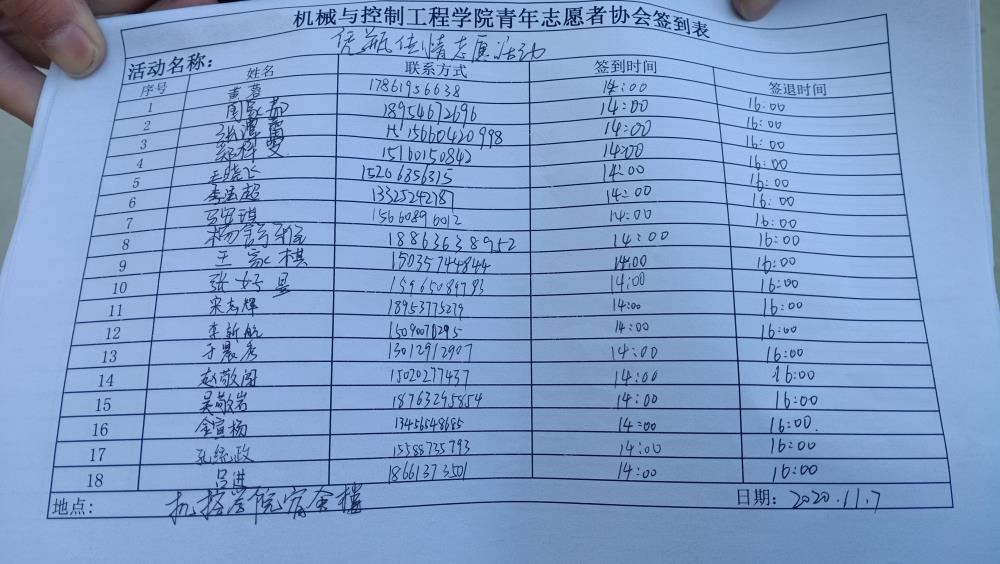 机械与控制工程学院青年志愿者协会签到表
活动名称： 凭瓶传情志愿活动
序号 姓名 联系方式 签到时间 签退时间
1 17861956638 14:00 16:00
2 周家 18954672696 14:00 16:00
3 15660420998 14:00 16:00
4 15160150842 14:00 16:00
5 王晓飞 15206856315 14:00 16:00
6 李浩超 13325242187 14:00 16:00
7 15660896012 14:00 16:00
8 杨 18863638952 14:00 16:00
9 王家棋 15035744844 14:00 16:00
10 张好昊 15965089783 14:00 16:00
11 宋志辉 18953775279 14:00 16:00
12 李新航 15090070295 14:00 16:00
13 于晨秀 13012912907 14:00 16:00
14 赵敬阁 15020277437 14:00 16:00
15 吴敬岩 18763295854 14:00 16:00
16 金宣杨 13456548685 14:00 16:00.
17 孔统政 15588735793 14:00 16:00
18 吕进 18661373501 14:00 16:00
地点： 机控学院宿舍楼 日期： 2020.11.7